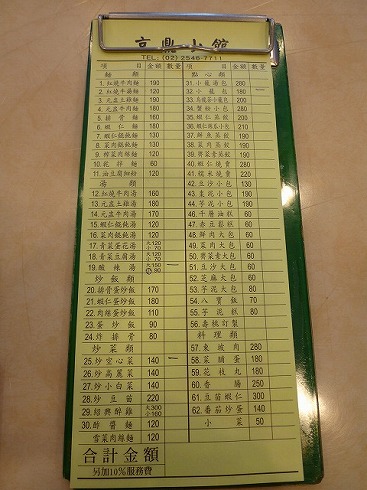 京鼎小館
TEL: (02) 2546-7711
項 目 金額 數量
麵 類
1.紅燒牛肉麵 190
2.紅燒牛湯麵 120
3.元盅土雞麵 190
4.元盅牛肉麵
5.排骨麵 160
6.蝦仁麵 180
7.蝦仁餛飩麵 130
8.菜肉餛飩麵 130
9.榨菜肉絲麵 120
10.花拌麵 60
11.油豆腐細粉 120
湯 類
12.紅燒牛肉湯 160
13.元盅土雞湯 180
14.元盅牛肉湯 170
15.蝦仁餛飩湯 120
16.菜肉餛飩湯 120
17.青菜蛋花湯 大120 小70
18.青菜豆腐湯 大120 小70
19.酸辣湯 大150 小90
炒飯類
20.排骨蛋炒飯 170
21.蝦仁蛋炒飯 180
22.肉絲蛋炒飯 110
23.蛋炒飯 90
24.炸排骨 80
炒菜類
25.炒空心菜 140
26.炒高麗菜 140
27.炒小白菜 140
28.炒豆苗 220
29.紹興醉雞 大300 小160
30.酢醬麵 120
雪菜肉絲麵 120
合計金額
另加10%服務費
項 目 金額 數量
點心類
31.小籠湯包 280
32.小籠包 180
33.烏龍茶小籠包 200
34.蟹粉小包
35.蝦仁蒸餃
36.蝦仁絲瓜小包 210
37.鮮肉蒸餃
38.菜肉蒸餃
39.薺菜蒸餃
40.蝦仁燒賣 280
41.糯米燒賣 220
42.豆沙小包 130
43.棗泥小包 190
44.芋泥小包 180
46.千層油糕 60
47.赤豆鬆糕 60
48.鮮肉大包 60
49.菜肉大包 60
50.薺菜素大包 60
51.豆沙大包 60
52.芝麻大包 60
53.芋泥大包 80
54.八寶飯 70
55.芋泥糕 80
56.壽桃訂製
料理類
57.東坡肉 280
58.菜脯蛋 180
59.花枝丸 180
60.香腸 250
61.豆苗蝦仁 300
62.番茄炒蛋 140
小菜 50